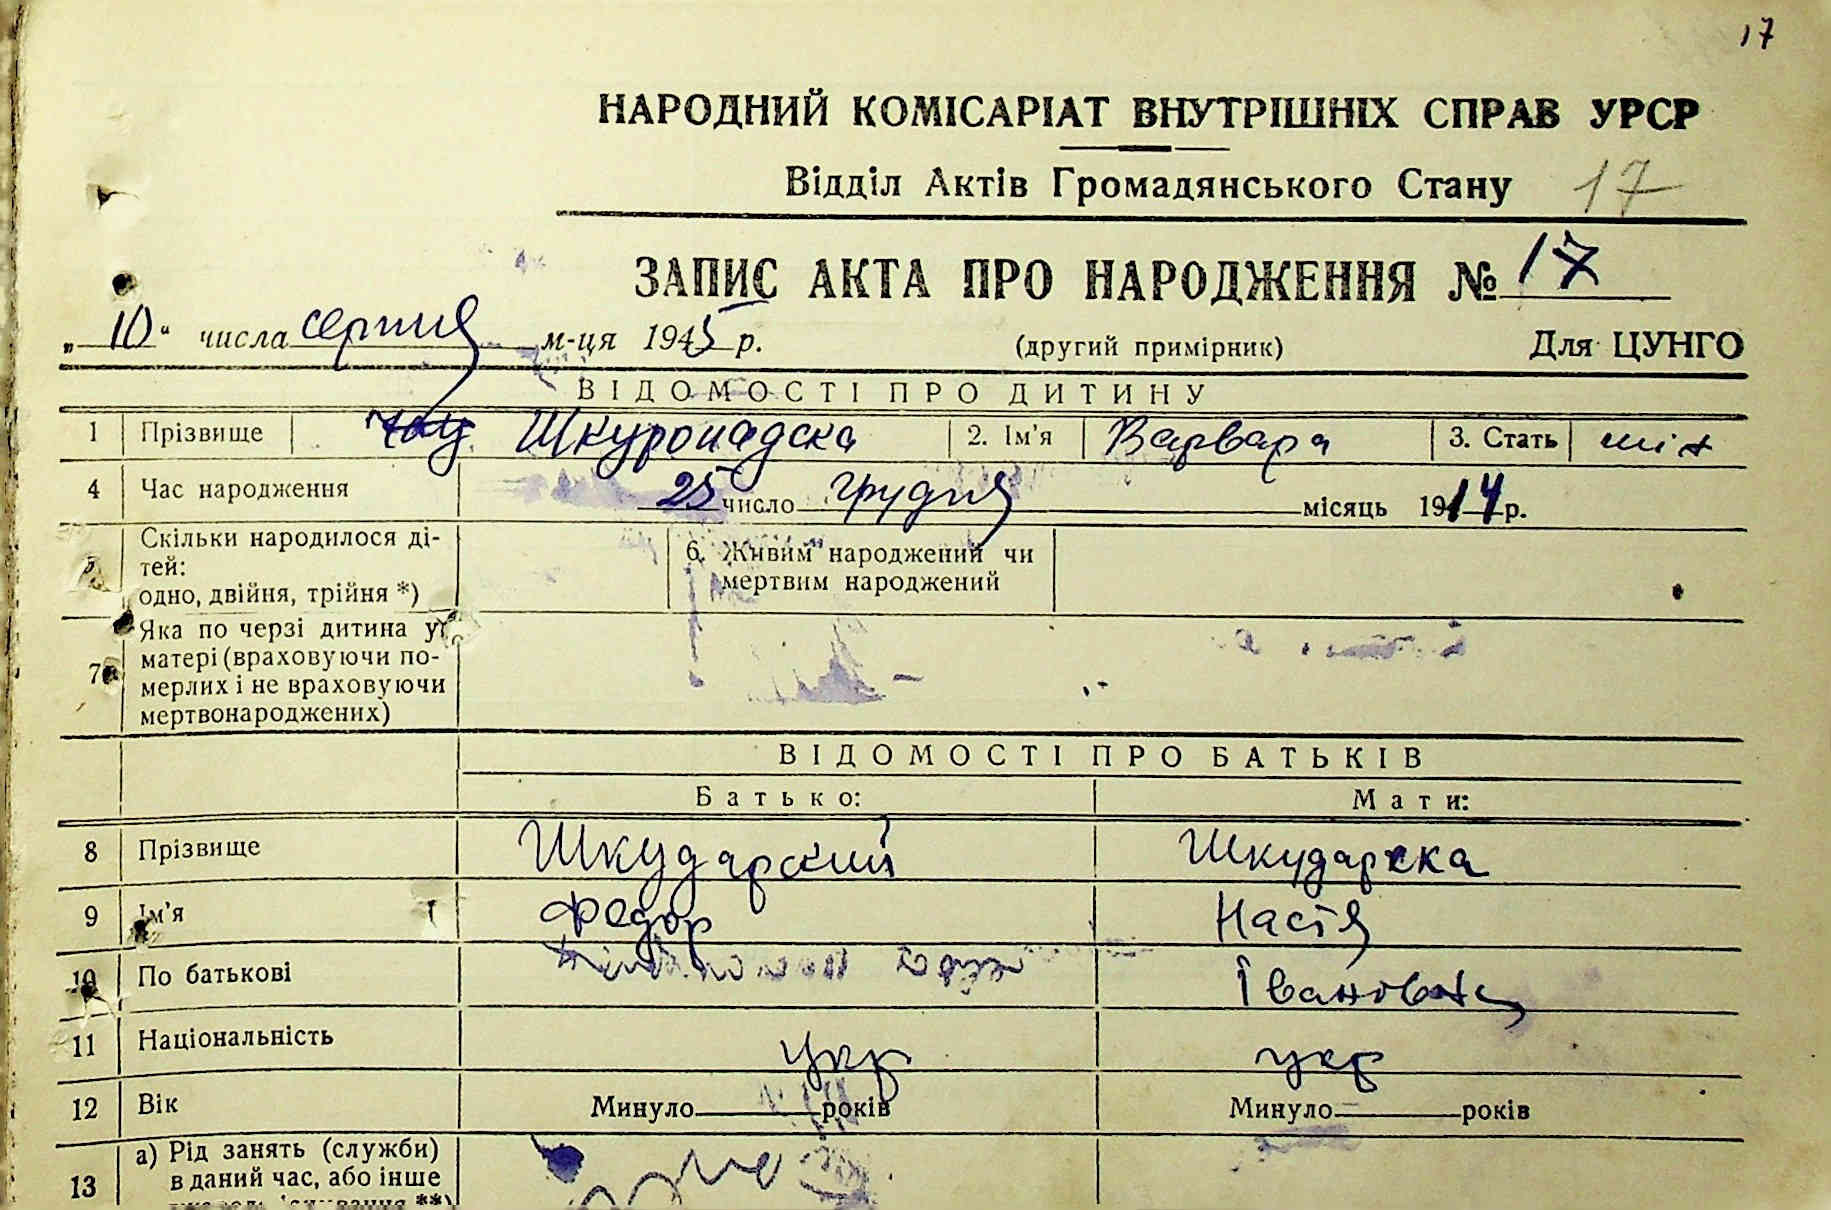 17
НАРОДНИЙ КОМІСАРІАТ ВНУТРІШНІХ СПРАВ УРСР
Відділ Актів Громадянського Стану 17
ЗАПИС АКТА ПРО НАРОДЖЕННЯ № 17
„10" числа серпня м-ця 1945 р. (другий примірник) Для ЦУНГО
ВІДОМОСТІ ПРО ДИТИНУ
1 Прізвище Шкуропадска 2. Ім'я Варвара 3. Стать
4 Час народження 25 число грудня місяць 1914 р.
5 Скільки народилося ді-
тей:
одно, двійня, трійня *)
6. Живим народжений чи
мертвим народжений
7 Яка по черзі дитина у
матері (враховуючи по-
мерлих і не враховуючи
мертвонароджених)
ВІДОМОСТІ ПРО БАТЬКІВ
Батько: Мати:
8 Прізвище Шкударский Шкударска
9 Ім'я Федор Настя
10 По батькові Івановна
11 Національність укр укр
12 Вік Минуло років Минуло років
13 а) Рід занять (служби)
в даний час, або інше